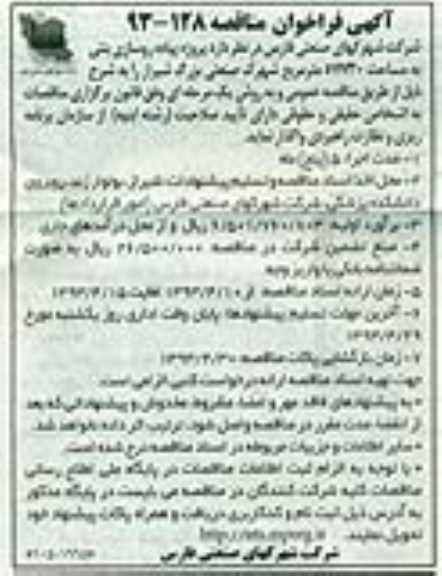 آگهی فراخوان مناقصه ۱۲۸-۹۳
شرکت شهرکهای صنعتی فارس در نظر دارد پروژه پیاده روسازی بتنی
به مساحت مترمربع شهرک صنعتی بزرگ شیراز را به شرح
ذیل از طریق مناقصه عمومی و به روش یک مرحله ای وفق قانون برگزاری مناقصات
به اشخاص حقیقی و حقوقی دارای تأیید صلاحیت (رشته ابنیه) از سازمان برنامه
ریزی و نظارت راهبردی واگذار نماید.
۱- مدت اجرا: ۵ (پنج) ماه
۲- محل اخذ اسناد مناقصه و تسلیم پیشنهادات: شیراز، بولوار زند، روبروی
دانشکده پزشکی، شرکت شهرکهای صنعتی فارس (امور قراردادها)
۳- برآورد اولیه: ریال و از محل درآمدهای جاری
۴- مبلغ تضمین شرکت در مناقصه: ریال به صورت
ضمانتنامه بانکی یا واریز وجه
۵- زمان ارائه اسناد مناقصه: از ۱۳۹۳/۴/۱۰ لغایت ۱۳۹۳/۴/۱۵
۶- آخرین مهلت تسلیم پیشنهادها: پایان وقت اداری روز یکشنبه مورخ
۱۳۹۳/۴/۲۹
۷- زمان بازگشایی پاکات مناقصه: ۱۳۹۳/۴/۳۰
جهت تهیه اسناد مناقصه ارائه درخواست کتبی الزامی است.
* به پیشنهادهای فاقد مهر و امضا، مشروط، مخدوش و پیشنهاداتی که بعد
از انقضا مدت مقرر در مناقصه واصل شود، ترتیب اثر داده نخواهد شد.
* سایر اطلاعات و جزییات مربوطه در اسناد مناقصه درج شده است.
* با توجه به الزام ثبت اطلاعات مناقصات در پایگاه ملی اطلاع رسانی
مناقصات کلیه شرکت کنندگان در مناقصه می بایست در پایگاه مذکور
به آدرس ذیل ثبت نام و کد کاربری دریافت و همراه پاکات پیشنهاد خود
تحویل نمایند.
شرکت شهرکهای صنعتی فارس